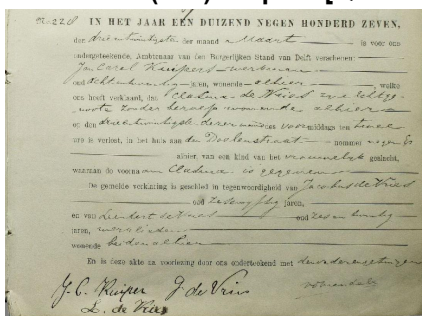 IN HET JAAR EEN DUIZEND NEGEN HONDERD ZEVEN,
den drieentwintigsten der maand Maart is voor ons
ondergeteekende, Ambtenaar van den Burgerlijken Stand van Delft verschenen:
Jan Carel Kuipers werkman
oud achtentwintig jaren, wonende alhier welke
ons heeft verklaard, dat Cladina de Vries zijne echtge-
noote zonder beroep wonende alhier
op den drieentwintigsten dezer maand voormiddags ten
ure is verlost, in het huis aan de Doelenstraat nommer
alhier, van een kind van het vrouwelijk geslacht,
waaraan de voornaam Cladina is gegeven
De gemelde verklaring is geschied in tegenwoordigheid van Jacobus de Vries
oud zesenvijftig jaren,
en van Leendert de Vries oud zesentwintig
jaren, werklieden
wonende beiden alhier
En is deze akte na voorlezing door ons onderteekend met den vader en getuigen
J. C. Kuiper J. de Vries
L. de Vries